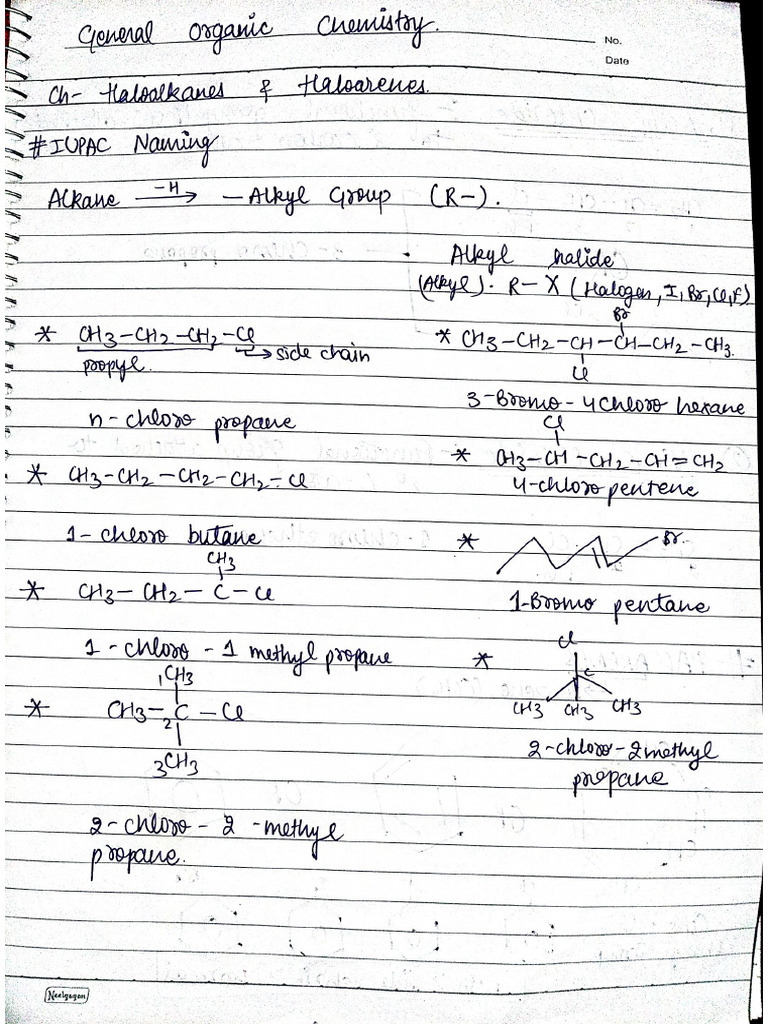 General Organic Chemistry.
No.
Date
Ch- Haloalkanes & Haloarenes.
#IUPAC Naming
Alkane —H→ — Alkyl Group (R-).
Alkyl halide
(Alkyl). R-X (Halogen, I, Br, Cl, F)
* CH3-CH2-CH2-Cl
propyl. → side chain
n-chloro propane
* CH3-CH2-CH2-CH2-Cl
1-chloro butane
CH3
* CH3-CH2-C-Cl
1-chloro-1 methyl propane
1CH3
* CH3-C-Cl
2
3CH3
2-chloro-2-methyl
propane.
Br
* CH3-CH2-CH-CH-CH2-CH3.
Cl
3-Bromo-4chloro hexane
Cl
* CH3-CH-CH2-CH=CH2
4-chloro pentene
* Br
1-Bromo pentane
Cl
* C
CH3 CH3 CH3
2-chloro-2methyl
propane
Neelgagan